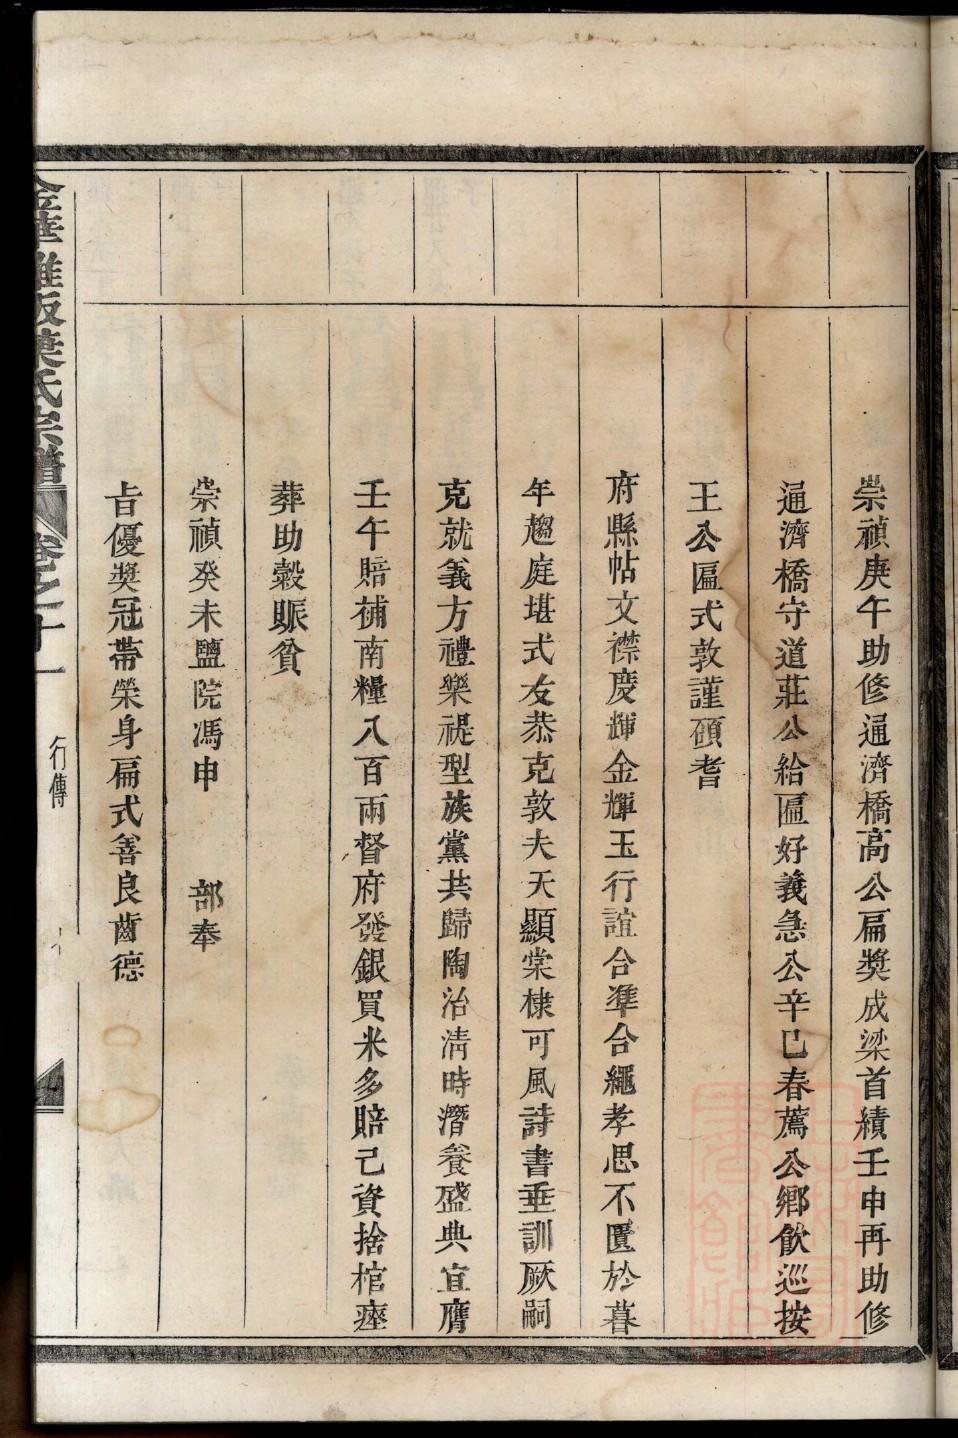 崇禎庚午助修通濟橋高公扁獎成梁首績壬申再助修
通濟橋守道莊公給匾好義急公辛巳春薦公鄉飲巡按
王公匾式敦謹碩耆
府縣帖文襟度輝金輝玉行誼合準合繩孝思不匱於暮
年趨庭堪式友恭克敦夫天顯棠棣可風詩書垂訓厥嗣
克就義方禮樂禔型族黨共歸陶治清時潛養盛典宜膺
壬午賠補南糧八百兩督府發銀買米多賠己資捨棺瘞
葬助穀賑貧
崇禎癸未鹽院馮申 部奉
旨優獎冠帶榮身扁式善良齒德
氏宗譜 卷之十一 行傳